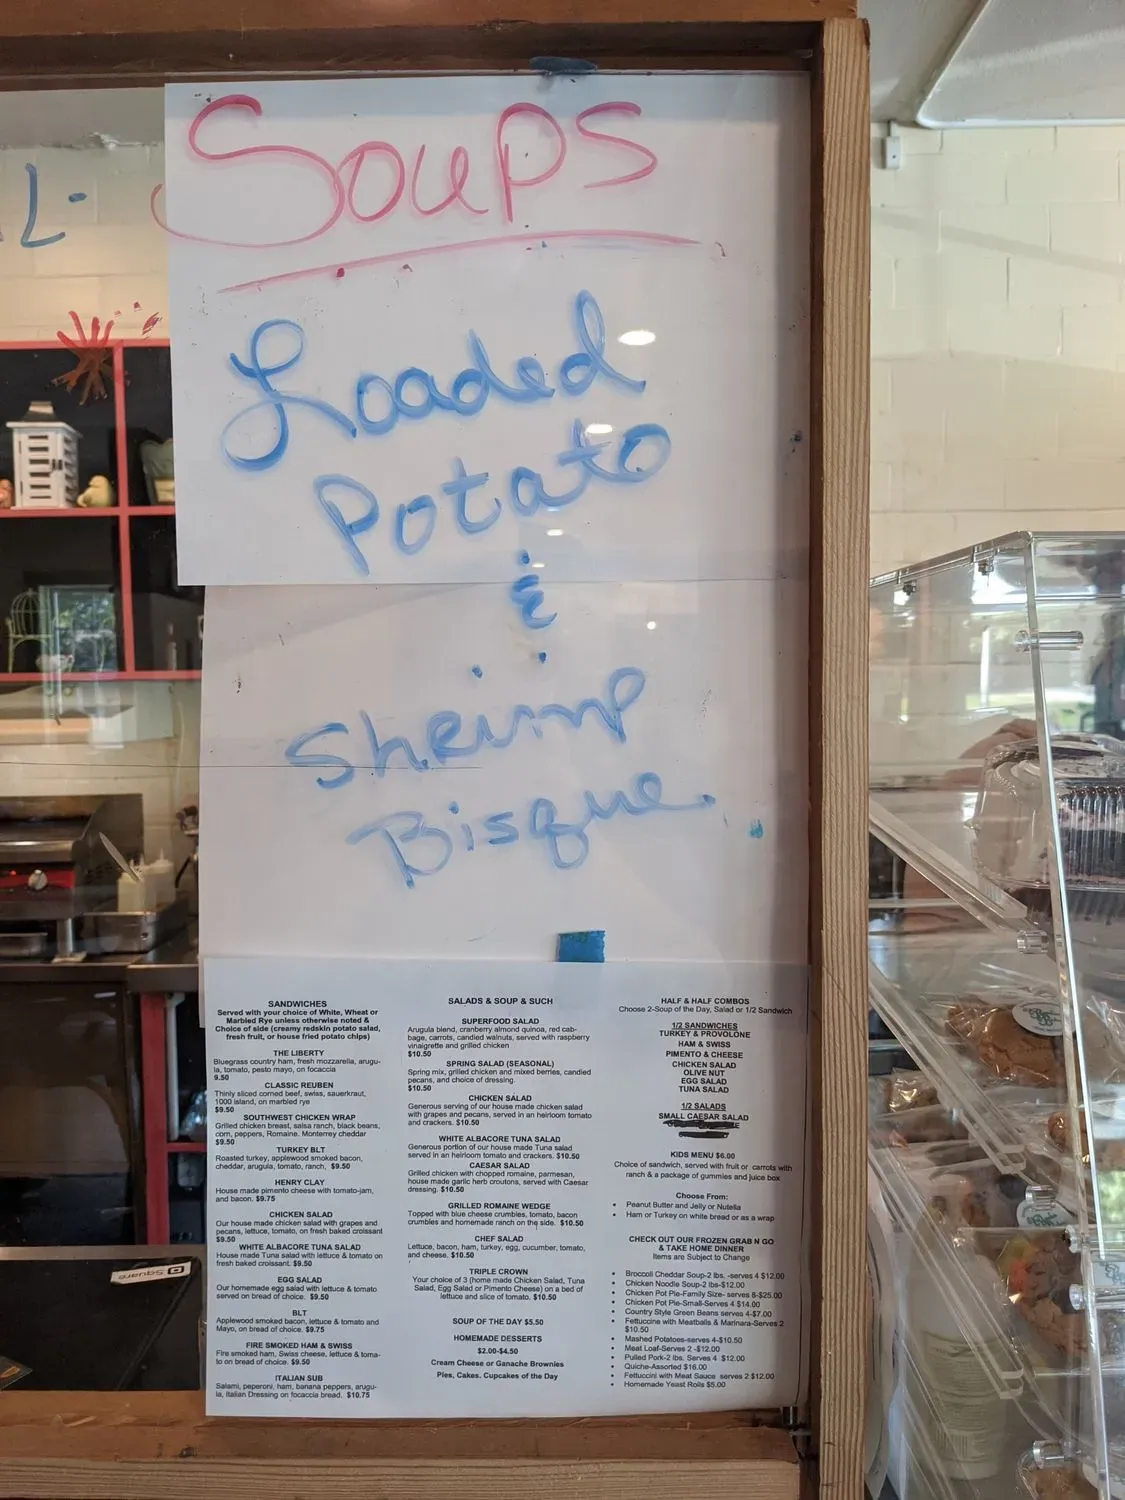 Soups
Loaded
Potato
&
Shrimp
Bisque
SANDWICHES
Served with your choice of White, Wheat or
Marbled Rye unless otherwise noted &
Choice of side (creamy redskin potato salad,
fresh fruit, or house fried potato chips)
THE LIBERTY
Bluegrass country ham, fresh mozzarella, arugu-
la, tomato, pesto mayo, on focaccia
9.50
CLASSIC REUBEN
Thinly sliced corned beef, swiss, sauerkraut,
1000 island, on marbled rye
$9.50
SOUTHWEST CHICKEN WRAP
Grilled chicken breast, salsa ranch, black beans,
corn, peppers, Romaine. Monterrey cheddar
$9.50
TURKEY BLT
Roasted turkey, applewood smoked bacon,
cheddar, arugula, tomato, ranch, $9.50
HENRY CLAY
House made pimento cheese with tomato-jam,
and bacon. $9.75
CHICKEN SALAD
Our house made chicken salad with grapes and
pecans, lettuce, tomato, on fresh baked croissant
$9.50
WHITE ALBACORE TUNA SALAD
House made Tuna salad with lettuce & tomato on
fresh baked croissant. $9.50
EGG SALAD
Our homemade egg salad with lettuce & tomato
served on bread of choice. $9.50
BLT
Applewood smoked bacon, lettuce & tomato and
Mayo, on bread of choice. $9.75
FIRE SMOKED HAM & SWISS
Fire smoked ham, Swiss cheese, lettuce & toma-
to on bread of choice. $9.50
ITALIAN SUB
Salami, peperoni, ham, banana peppers, arugu-
la, Italian Dressing on focaccia bread. $10.75
SALADS & SOUP & SUCH
SUPERFOOD SALAD
Arugula blend, cranberry almond quinoa, red cab-
bage, carrots, candied walnuts, served with raspberry
vinaigrette and grilled chicken
$10.50
SPRING SALAD (SEASONAL)
Spring mix, grilled chicken and mixed berries, candied
pecans, and choice of dressing.
$10.50
CHICKEN SALAD
Generous serving of our house made chicken salad
with grapes and pecans, served in an heirloom tomato
and crackers. $10.50
WHITE ALBACORE TUNA SALAD
Generous portion of our house made Tuna salad
served in an heirloom tomato and crackers. $10.50
CAESAR SALAD
Grilled chicken with chopped romaine, parmesan,
house made garlic herb croutons, served with Caesar
dressing. $10.50
GRILLED ROMAINE WEDGE
Topped with blue cheese crumbles, tomato, bacon
crumbles and homemade ranch on the side. $10.50
CHEF SALAD
Lettuce, bacon, ham, turkey, egg, cucumber, tomato,
and cheese. $10.50
TRIPLE CROWN
Your choice of 3 (home made Chicken Salad, Tuna
Salad, Egg Salad or Pimento Cheese) on a bed of
lettuce and slice of tomato. $10.50
SOUP OF THE DAY $5.50
HOMEMADE DESSERTS
$2.00-$4.50
Cream Cheese or Ganache Brownies
Pies, Cakes. Cupcakes of the Day
HALF & HALF COMBOS
Choose 2-Soup of the Day, Salad or 1/2 Sandwich
1/2 SANDWICHES
TURKEY & PROVOLONE
HAM & SWISS
PIMENTO & CHEESE
CHICKEN SALAD
OLIVE NUT
EGG SALAD
TUNA SALAD
1/2 SALADS
SMALL CAESAR SALAD
KIDS MENU $6.00
Choice of sandwich, served with fruit or carrots with
ranch & a package of gummies and juice box
Choose From:
• Peanut Butter and Jelly or Nutella
• Ham or Turkey on white bread or as a wrap
CHECK OUT OUR FROZEN GRAB N GO
& TAKE HOME DINNER
Items are Subject to Change
• Broccoli Cheddar Soup-2 lbs. -serves 4 $12.00
• Chicken Noodle Soup-2 lbs-$12.00
• Chicken Pot Pie-Family Size- serves 8-$25.00
• Chicken Pot Pie-Small-Serves 4 $14.00
• Country Style Green Beans serves 4-$7.00
• Fettuccine with Meatballs & Marinara-Serves 2
$10.50
• Mashed Potatoes-serves 4-$10.50
• Meat Loaf-Serves 2 -$12.00
• Pulled Pork-2 lbs. Serves 4 $12.00
• Quiche-Assorted $16.00
• Fettuccini with Meat Sauce serves 2 $12.00
• Homemade Yeast Rolls $5.00
Square